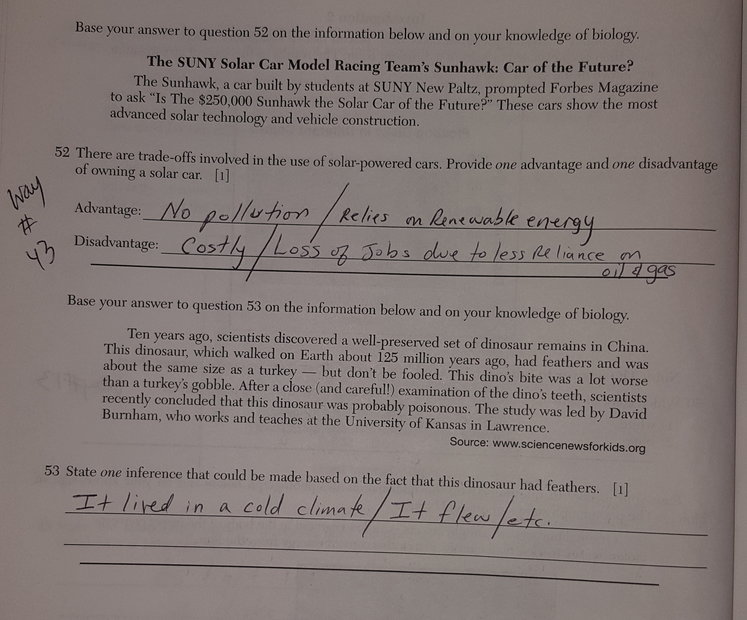 Base your answer to question 52 on the information below and on your knowledge of biology.
The SUNY Solar Car Model Racing Team's Sunhawk: Car of the Future?
The Sunhawk, a car built by students at SUNY New Paltz, prompted Forbes Magazine
to ask "Is The $250,000 Sunhawk the Solar Car of the Future?" These cars show the most
advanced solar technology and vehicle construction.
52 There are trade-offs involved in the use of solar-powered cars. Provide one advantage and one disadvantage
of owning a solar car. [1]
Way
#
43
Advantage: No pollution / Relies on Renewable energy
Disadvantage: Costly / Loss of Jobs due to less Reliance on
oil & gas
Base your answer to question 53 on the information below and on your knowledge of biology.
Ten years ago, scientists discovered a well-preserved set of dinosaur remains in China.
This dinosaur, which walked on Earth about 125 million years ago, had feathers and was
about the same size as a turkey — but don't be fooled. This dino's bite was a lot worse
than a turkey's gobble. After a close (and careful!) examination of the dino's teeth, scientists
recently concluded that this dinosaur was probably poisonous. The study was led by David
Burnham, who works and teaches at the University of Kansas in Lawrence.
Source: www.sciencenewsforkids.org
53 State one inference that could be made based on the fact that this dinosaur had feathers. [1]
It lived in a cold climate / It flew / etc.